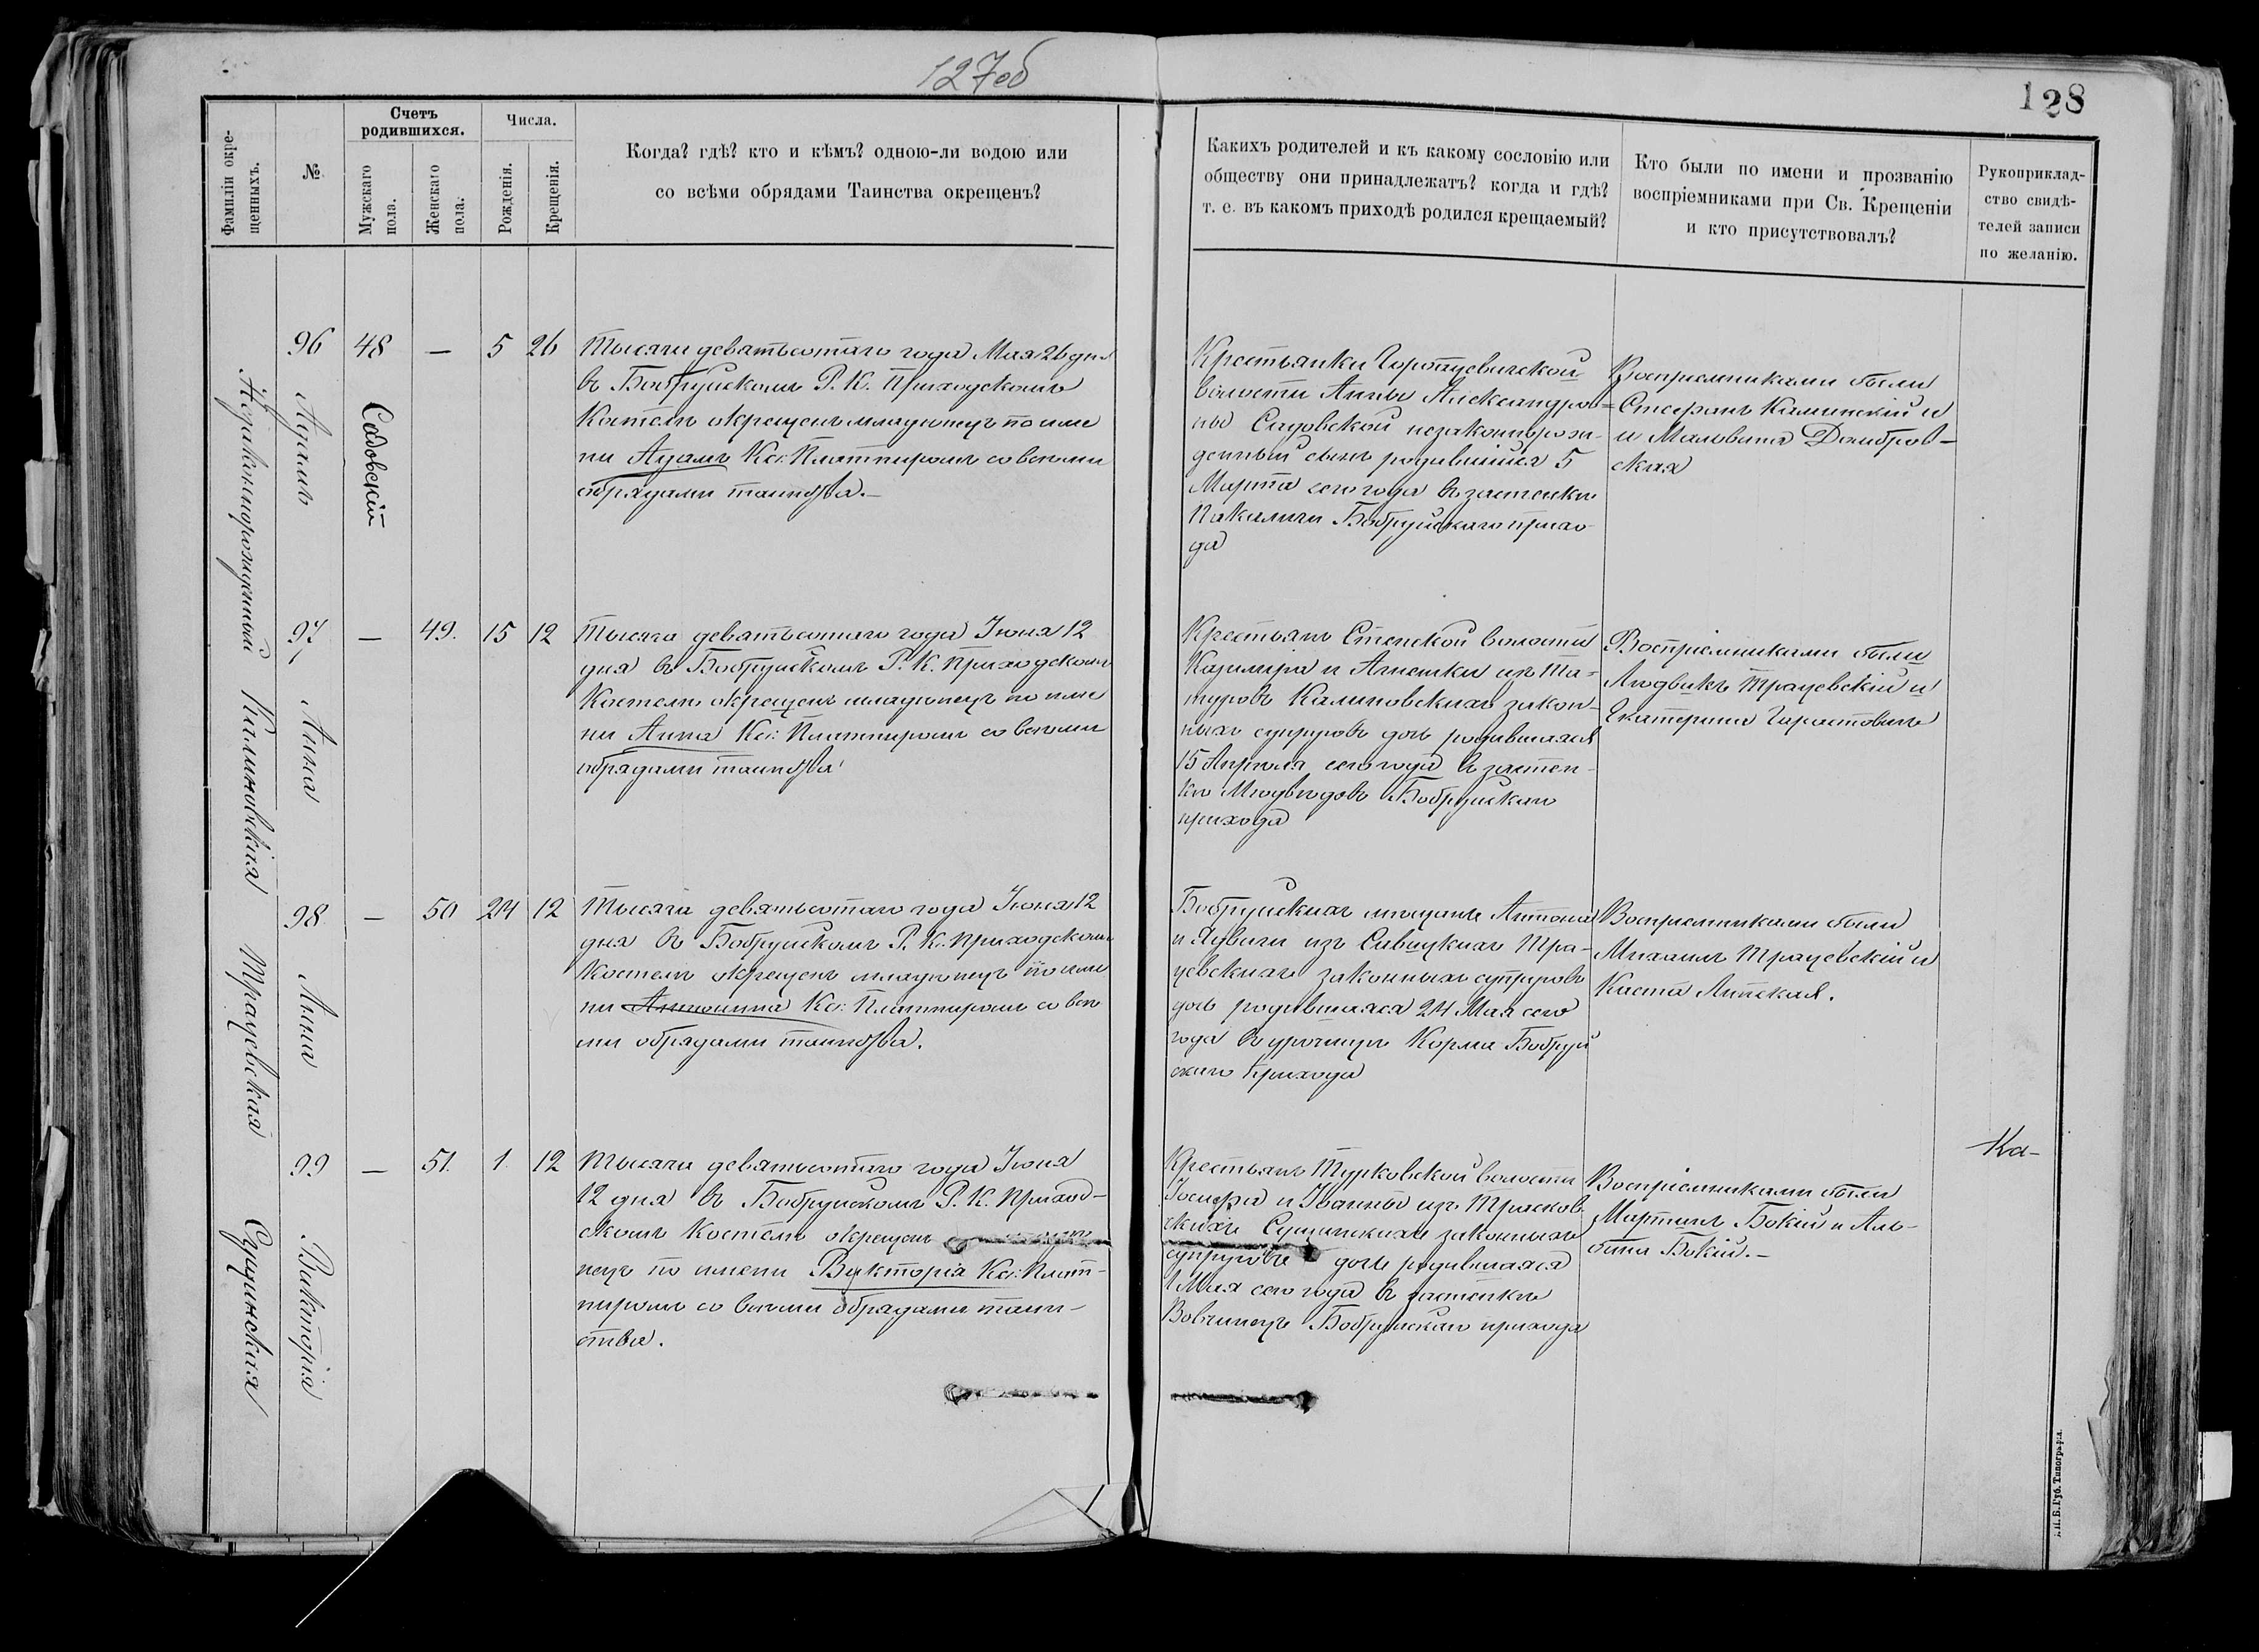 127об
128
Фамиліи окре-
щенныхъ.
№
Счетъ
родившихся.
Мужскаго
пола.
Женскаго
пола.
Числа.
Рожденія.
Крещенія.
Когда? гдѣ? кто и кѣмъ? одною-ли водою или
со всѣми обрядами Таинства окрещенъ?
Какихъ родителей и къ какому сословію или
обществу они принадлежатъ? когда и гдѣ?
т. е. въ какомъ приходѣ родился крещаемый?
Кто были по имени и прозванію
воспріемниками при Св. Крещеніи
и кто присутствовалъ?
Рукоприклад-
ство свидѣ-
телей записи
по желанію.
Незаконнорожденный
Адамъ
Садовскій
96 48 — 5 26
Тысяча девятьсотаго года Мая 26 дня
въ Бобруйскомъ Р. К. Приходскомъ
Костелѣ окрещенъ младенецъ по име
ни Адамъ Кс: Платпиромъ со всѣми
обрядами таинства.—
Крестьянки
волости Анны Александров=
ны Садовской незаконнорож-
денный сынъ родившійся 5
Марта сего года въ застенкѣ
Бобруйскаго прихо
да
Воспріемниками были
Стефанъ Каминскій и
и Мальвина Домбров-
ская
Калиновская
Анна
97 — 49. 15 12
Тысяча девятьсотаго года Іюня 12
дня въ Бобруйскомъ Р. К. Приходскомъ
Костелѣ окрещенъ младенецъ по име
ни Анна Кс: Платпиромъ со всѣми
обрядами таинства
Крестьянъ Степской волости
Казиміра и Агнешки изъ Та-
туровъ Калиновскихъ закон-
ныхъ супруговъ дочь родившаяся
15 Апрѣля сего года въ застен-
кѣ Медвѣдовъ Бобруйскаго
прихода
Воспріемниками были
Людвикъ Трацевскій и
Екатерина
Трацевская
Анна
98 — 50 24 12
Тысяча девятьсотаго года Іюня 12
дня въ Бобруйскомъ Р. К. Приходскомъ
Костелѣ окрещенъ младенецъ по име
ни Антонина Кс: Платпиромъ со всѣ
ми обрядами таинства.
Бобруйскихъ мѣщанъ Антона
и Ядвиги изъ Сивицкихъ Тра-
цевскихъ законныхъ супруговъ
дочь родившаяся 24 Мая сего
года въ урочищѣ Корма Бобруй
скаго прихода
Воспріемниками были
Михаилъ Трацевскій и
Липская.
Сущинская
Викторія
99 — 51. 1. 12
Тысяча девятьсотаго года Іюня
12 дня въ Бобруйскомъ Р. К. Приход-
скомъ Костелѣ окрещенъ
нецъ по имени Викторія Кс: Плат-
пиромъ со всѣми обрядами таин-
ства.
Крестьянъ Турковской волости
Іосифа и Іоанны изъ
скихъ Сущинскихъ законныхъ
супруговъ дочь родившаяся
1 Мая сего года въ застенкѣ
Вовчинецъ Бобруйскаго прихода
Воспріемниками были
Мартинъ Бокій и Аль-
бина Бокій.—
Ка-
Губ. Типографія.